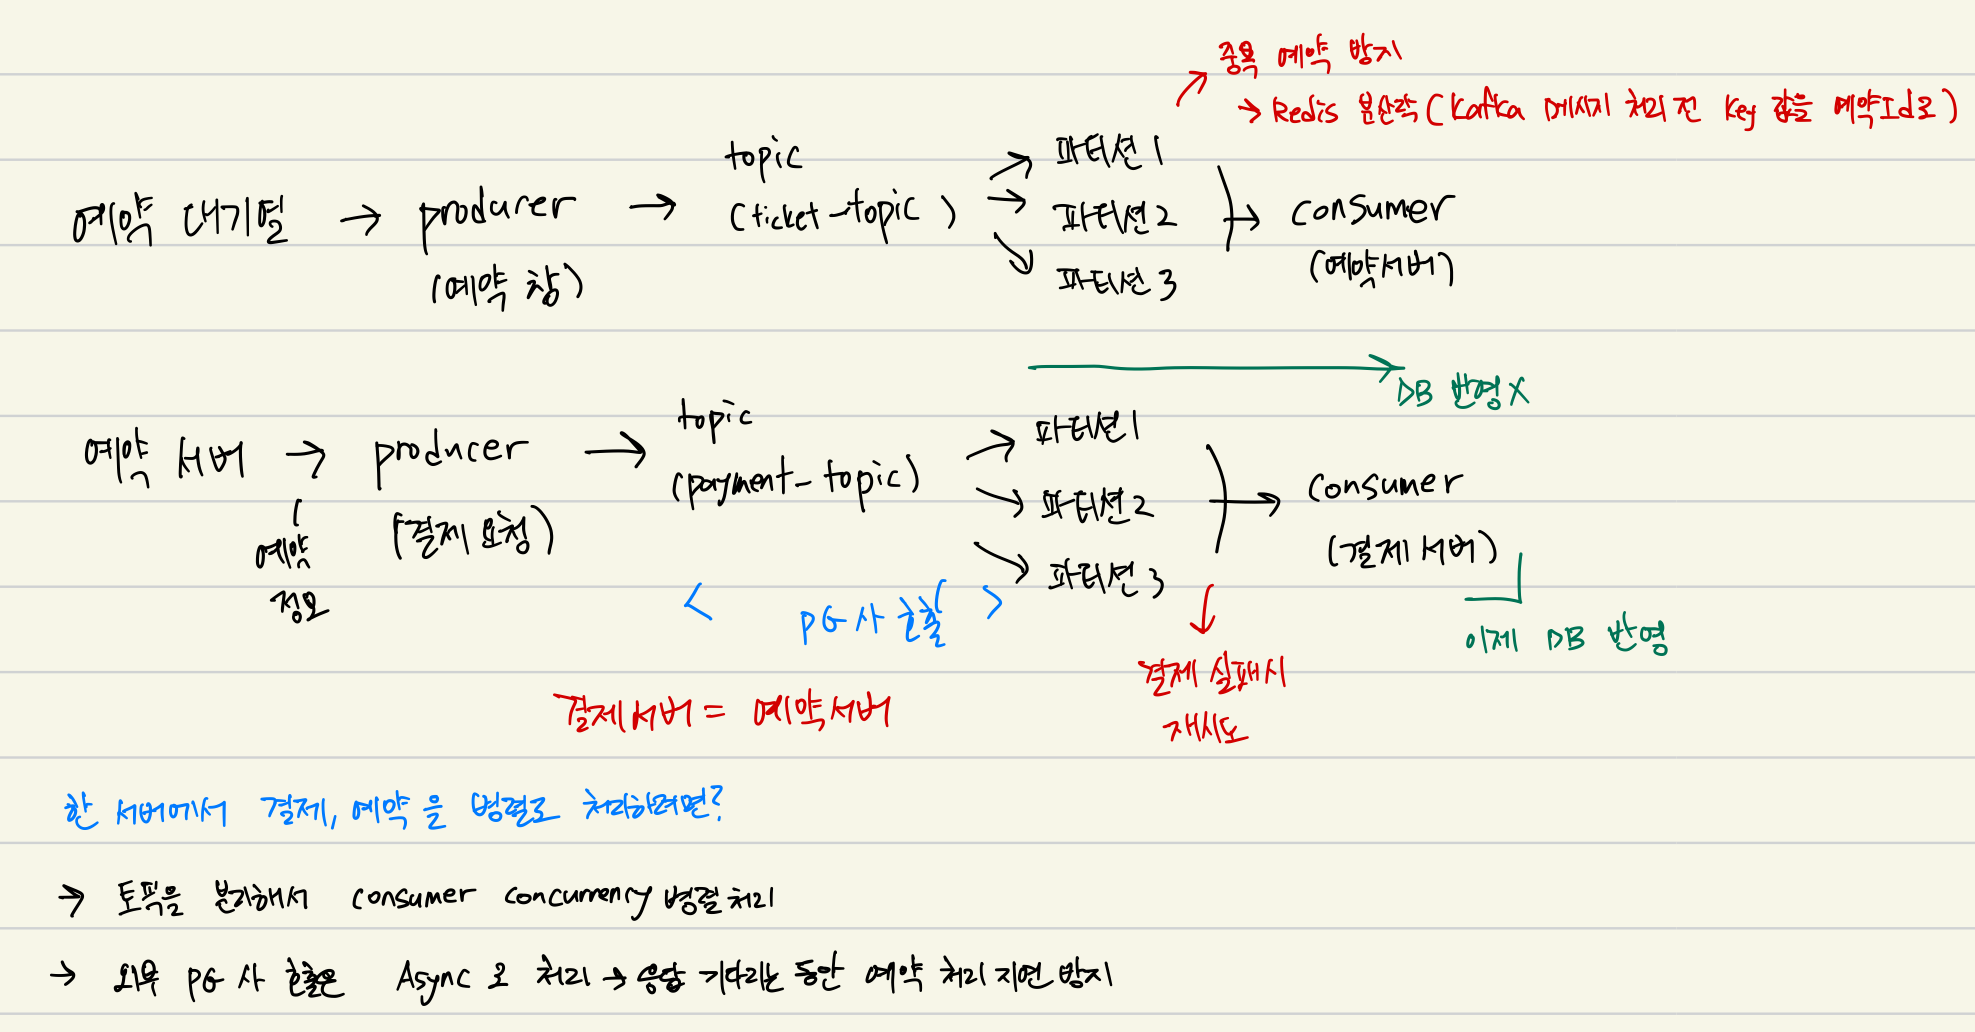 중복 예약 방지
→ Redis 분산락 (Kafka 메시지 처리 전 Key 값을 예약Id로)
예약 대기열 → producer → topic → 파티션 1
(예약 창)
(ticket-topic)
파티션 2
파티션 3
→ consumer
(예약서버)
DB 반영 X
예약 서버 → producer → topic → 파티션 1
예약
정보
(결제 요청)
(payment-topic)
파티션 2
파티션 3
→ consumer
(결제 서버)
< PG사 호출 >
이제 DB 반영
결제 실패시
재시도
결제서버 = 예약서버
한 서버에서 결제, 예약을 병렬로 처리하려면?
→ 토픽을 분리해서 consumer concurrency 병렬처리
→ 외부 PG 사 호출은 Async로 처리 → 응답 기다리는 동안 예약 처리 지연 방지